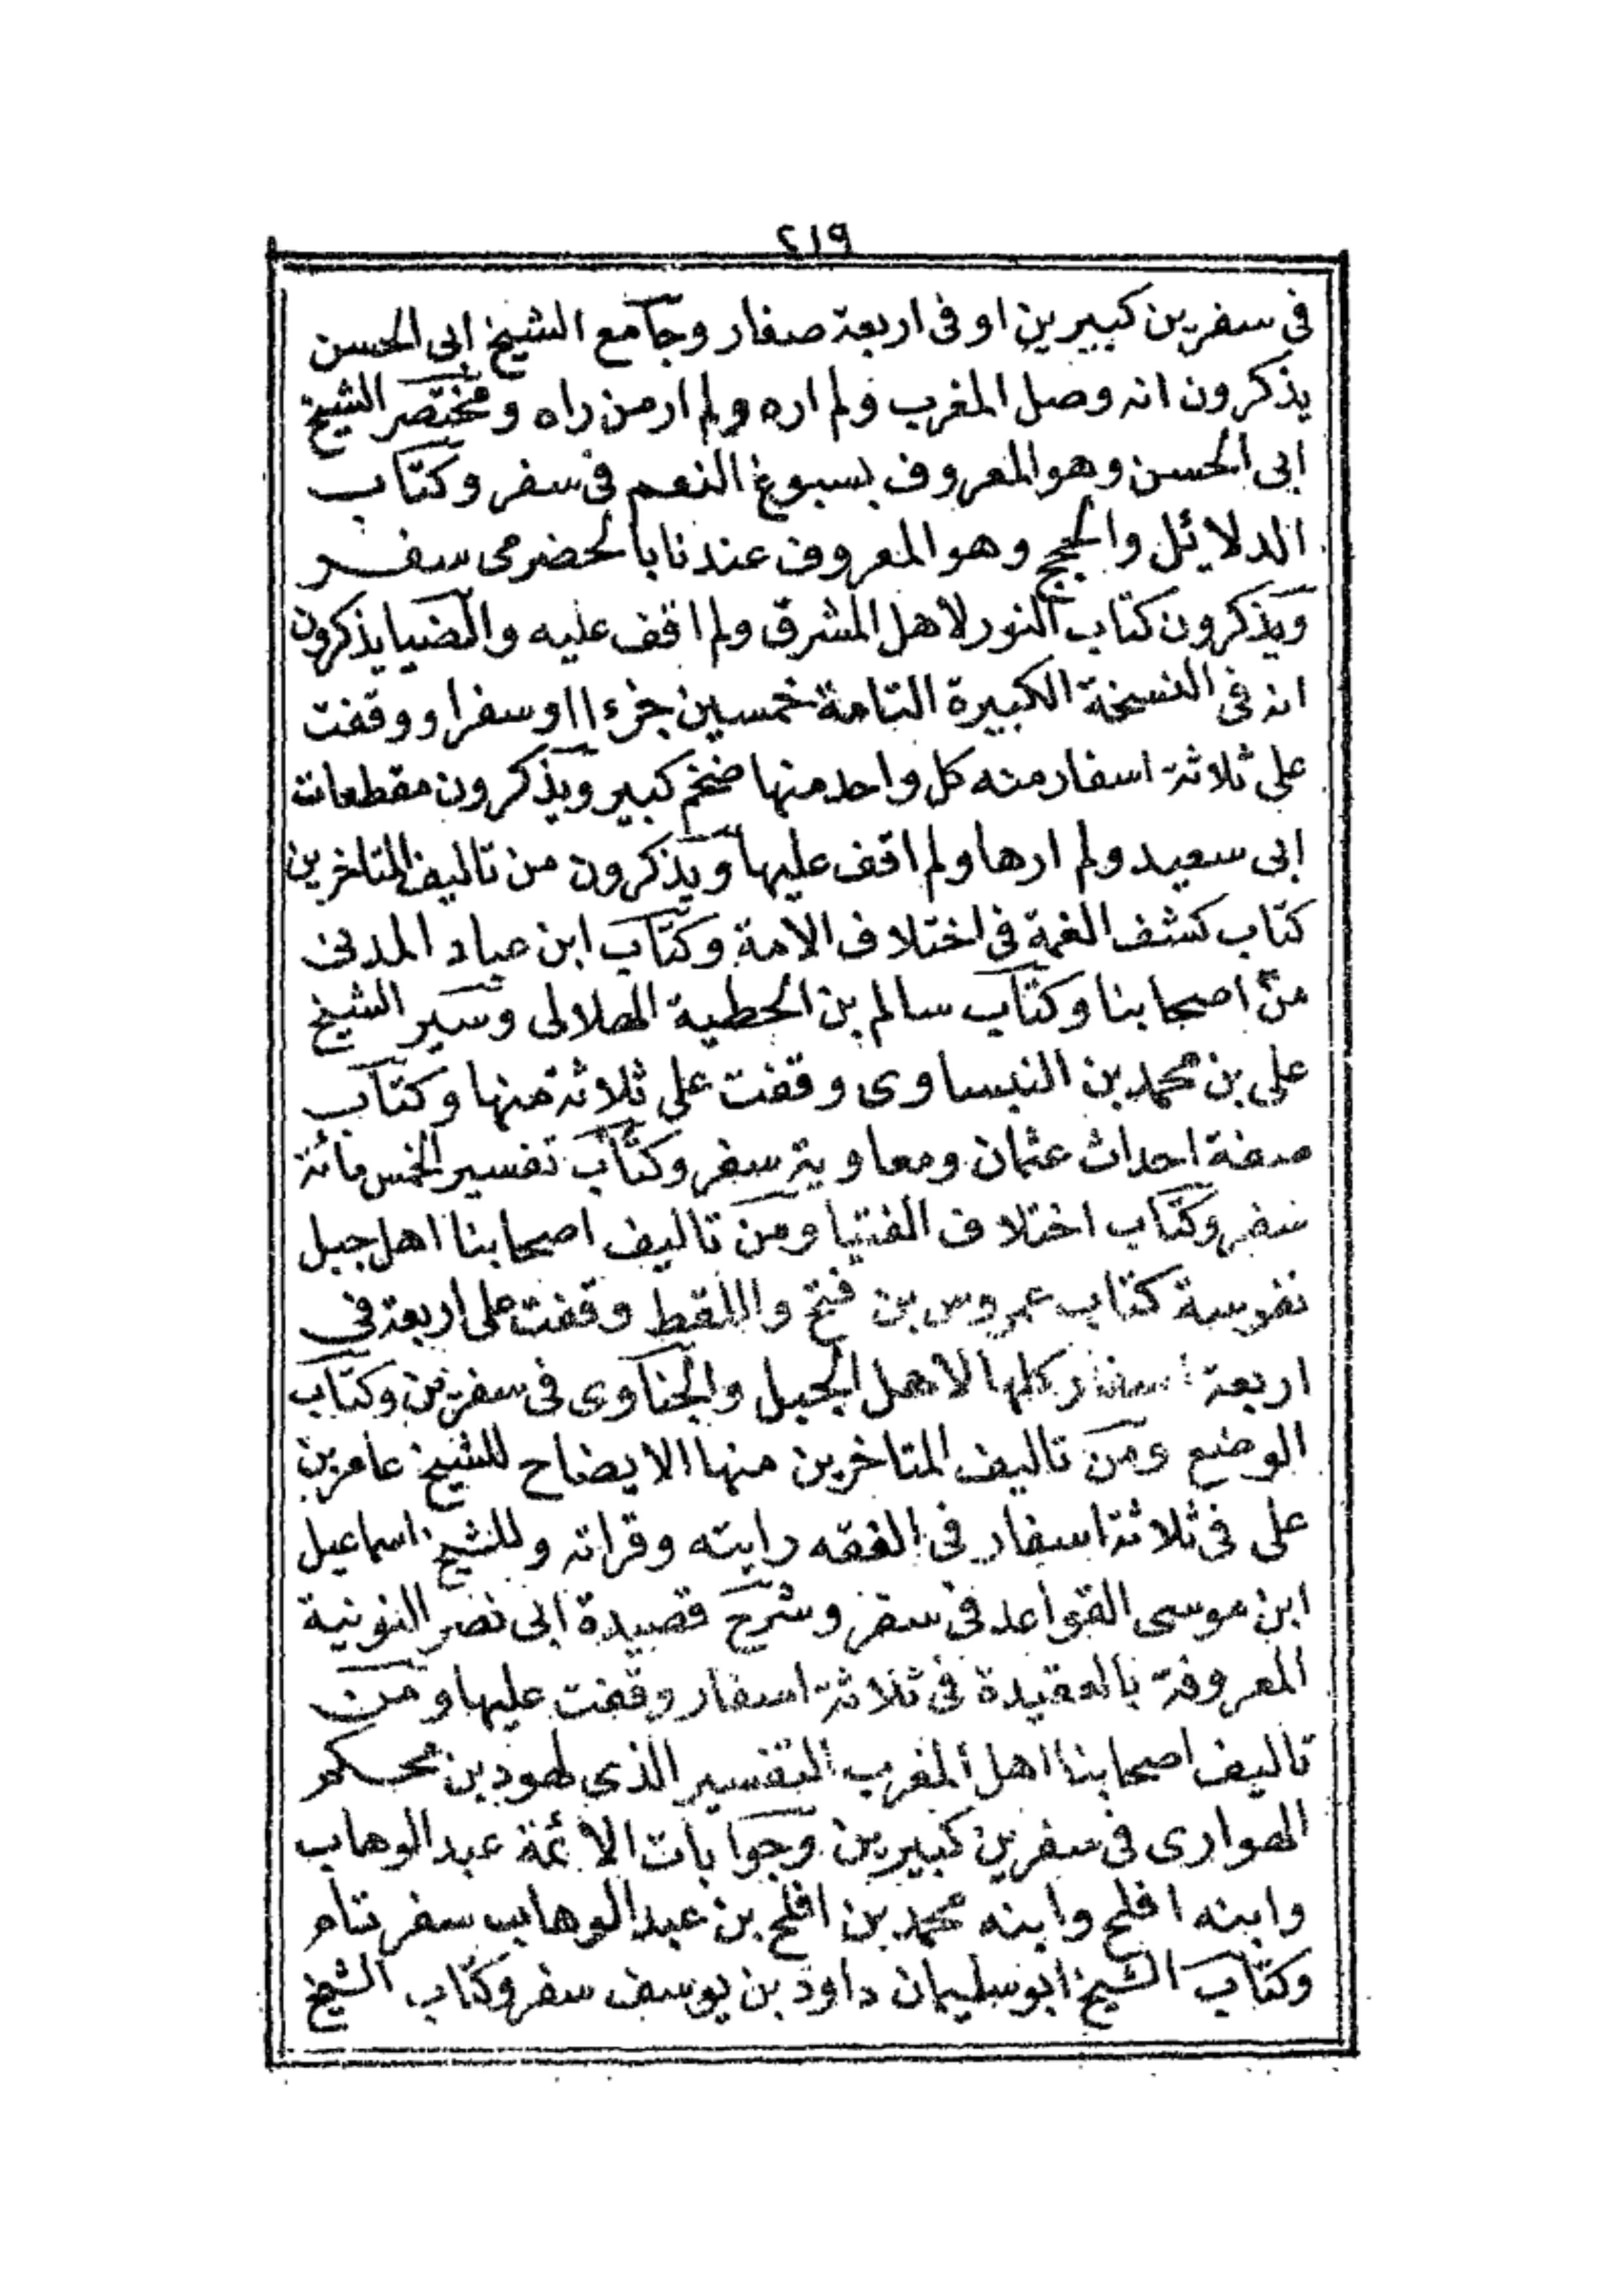 ٢١٩
فى سفرين كبيرين او فى اربعة صغار وجامع الشيخ ابى الحسن
يذكرون انه وصل المغرب ولم اره ولم ار من راه ومختصر الشيخ
ابى الحسن وهو المعروف بسبوغ النعم فى سفر وكتاب
الدلائل والحجج وهو المعروف عندنا بالحضرمى سفر
ويذكرون كتاب النور لاهل المشرق ولم اقف عليه والضيا يذكرون
انه فى النسخة الكبيرة التامة خمسين جزءا او سفرا ووقفت
على ثلاثة اسفار منه كل واحد منها ضخم كبير ويذكرون مقطعات
ابى سعيد ولم ارها ولم اقف عليها ويذكرون من تاليف المتاخرين
كتاب كشف الغمة فى اختلاف الامة وكتاب ابن عباد المدنى
من اصحابنا وكتاب سالم بن الحطية الهلالى وسير الشيخ
على بن محمد بن البساوى وقفت على ثلاثة منها وكتاب
صفة احداث عثمان ومعاوية سفر وكتاب تفسير الخمس مائة
سفر وكتاب اختلاف الفتيا ومن تاليف اصحابنا اهل جبل
نفوسة كتاب عمروس بن فتح واللقط وقفت على اربعة فى
اربعة اسفار كلها لاهل الجبل والجناوى فى سفرين وكتاب
الوضع ومن تاليف المتاخرين منها الايضاح للشيخ عامر بن
على فى ثلاثة اسفار فى الفقه رايته وقراته وللشيخ اسماعيل
ابن موسى القواعد فى سفر وشرح قصيدة ابى نصر النونية
المعروفة بالعقيدة فى ثلاثة اسفار وقفت عليها ومن
تاليف اصحابنا اهل المغرب التفسير الذى لهود بن محكم
الهوارى فى سفرين كبيرين وجوابات الائمة عبد الوهاب
وابنه افلح وابنه محمد بن افلح بن عبد الوهاب سفر تام
وكتاب الشيخ ابو سليمان داود بن يوسف سفر وكتاب الشيخ